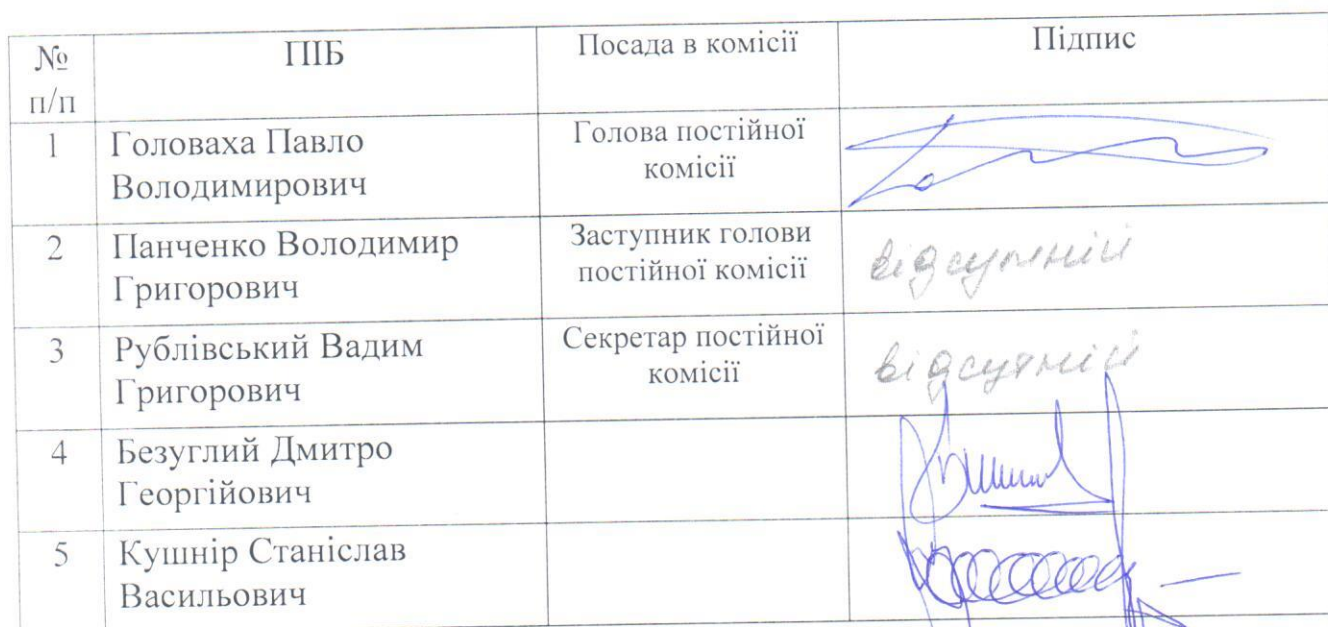 № п/п ПІБ Посада в комісії Підпис
1 Головаха Павло Володимирович Голова постійної комісії
2 Панченко Володимир Григорович Заступник голови постійної комісії відсутній
3 Рублівський Вадим Григорович Секретар постійної комісії відсутній
4 Безуглий Дмитро Георгійович
5 Кушнір Станіслав Васильович